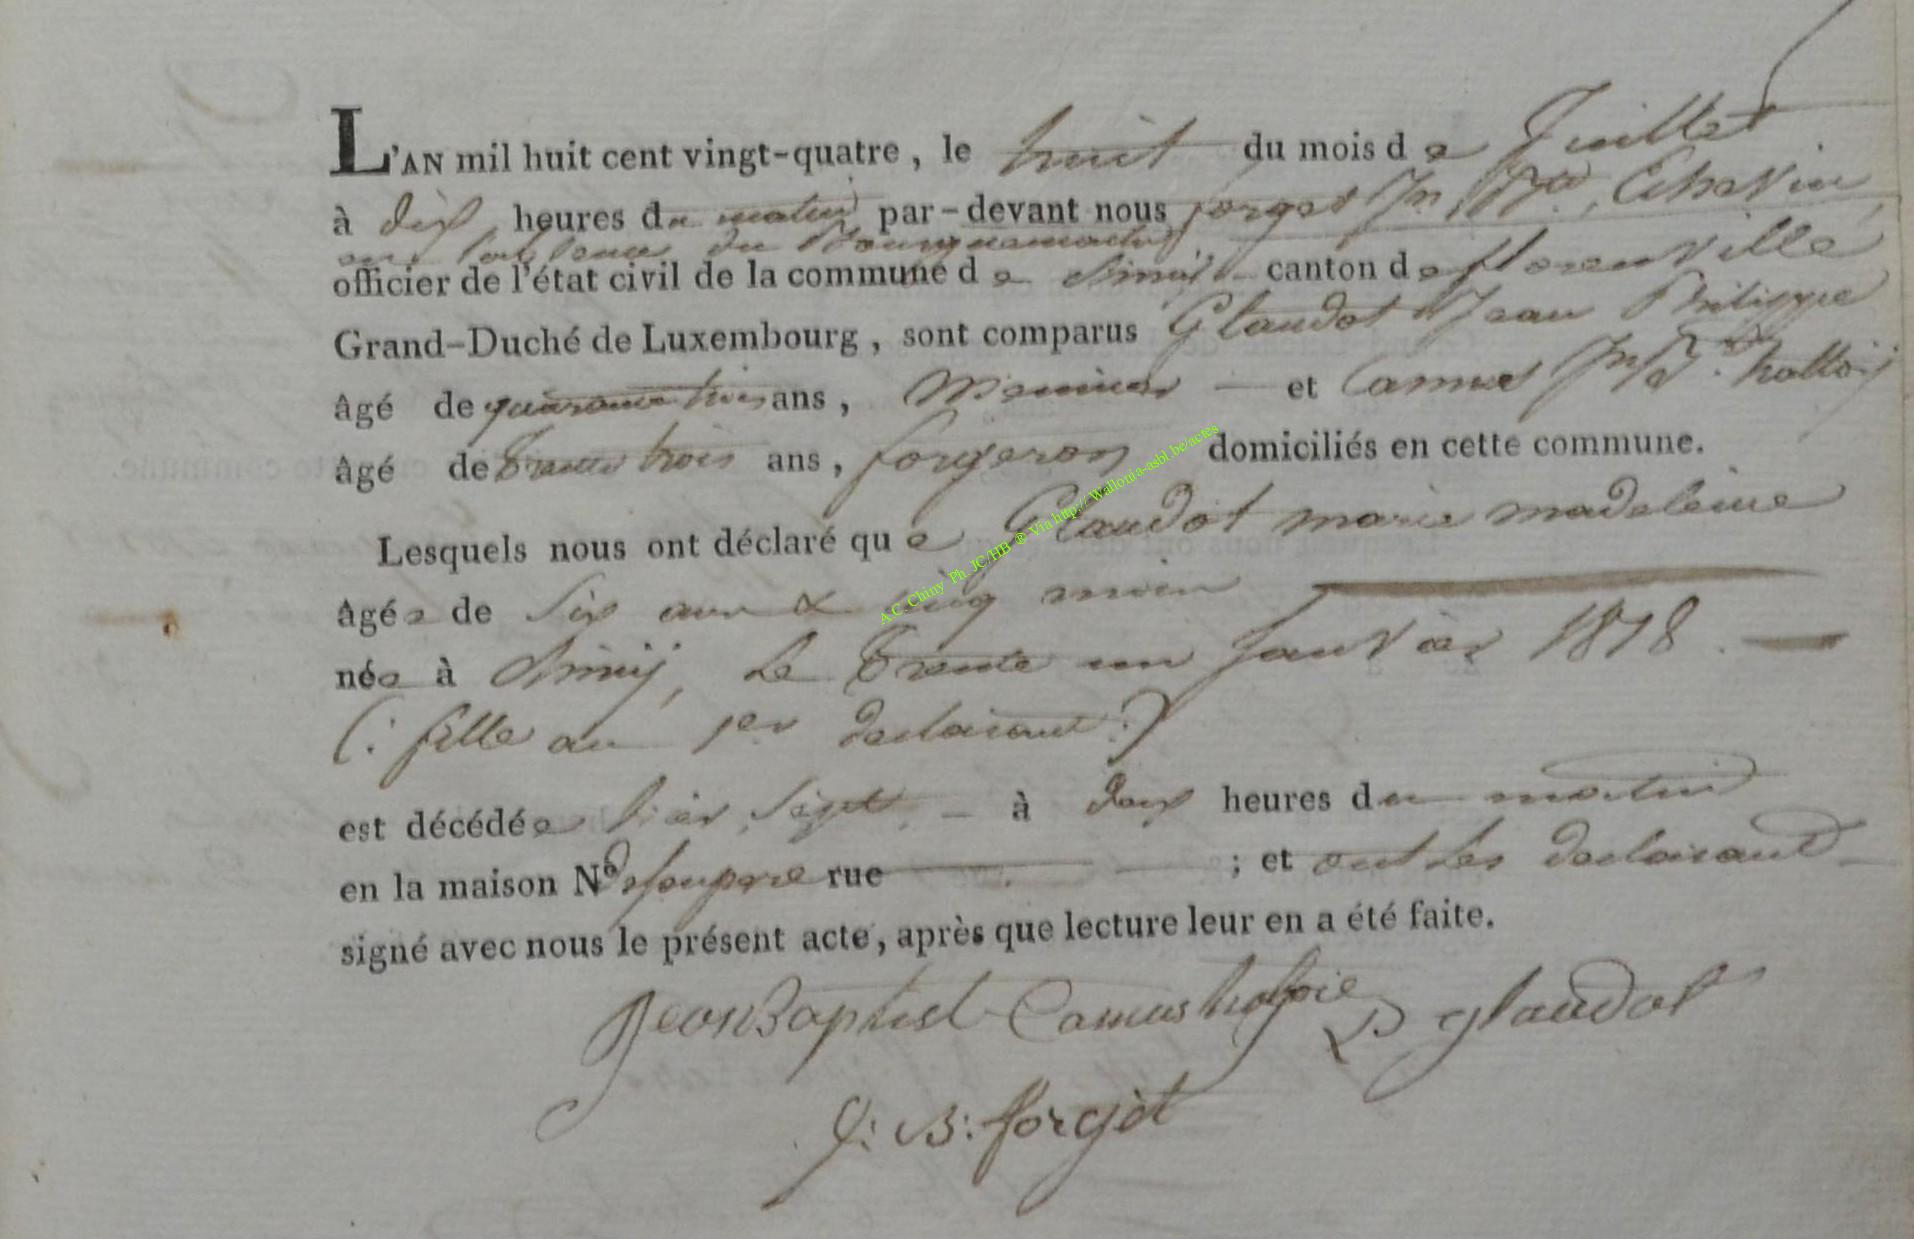 L'AN mil huit cent vingt-quatre, le huit du mois de Juillet
à dix heures du matin par-devant nous forget Jn Bte, Echevin
en l'absence du Bourguemaitre
officier de l'état civil de la commune de chinij canton de florenville
Grand-Duché de Luxembourg, sont comparus Glaudot Jean Philippe
âgé de quarante trois ans, Menuier et Camus Jn Bte
âgé de trente trois ans, forgeron domiciliés en cette commune.
Lesquels nous ont déclaré que Glaudot marie madeleine
âgée de Six ans & cinq mois
née à chinij, Le trente un Janvier 1818.
(: fille au 1er declarant :)
est décédée hier, Sept, à deux heures du matin
en la maison No rue ; et ont Les declarant
signé avec nous le présent acte, après que lecture leur en a été faite.
Jean Baptist Camus P glaudot
J: B: forget
A.C. Chiny Ph. JC/HB ® Via http://Wallonia-asbl.be/actes